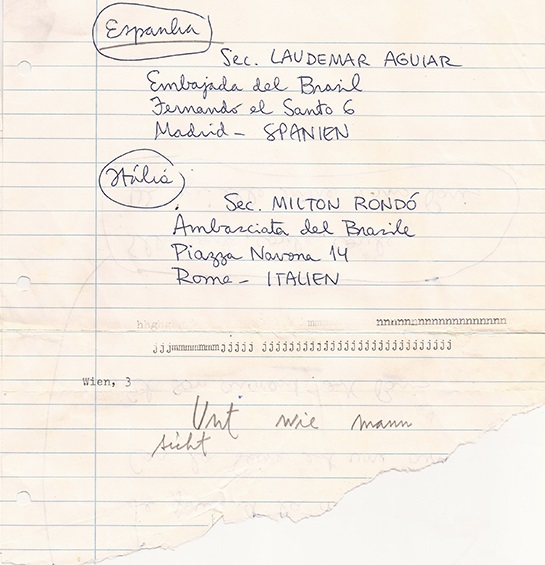 Espanha
Sec. LAUDEMAR AGUIAR
Embajada del Brasil
Fernando el Santo 6
Madrid - SPANIEN
Itália
Sec. MILTON RONDÓ
Ambasciata del Brasile
Piazza Navona 14
Roma - ITALIEN
Wien, 3
Unt wie mann
sicht